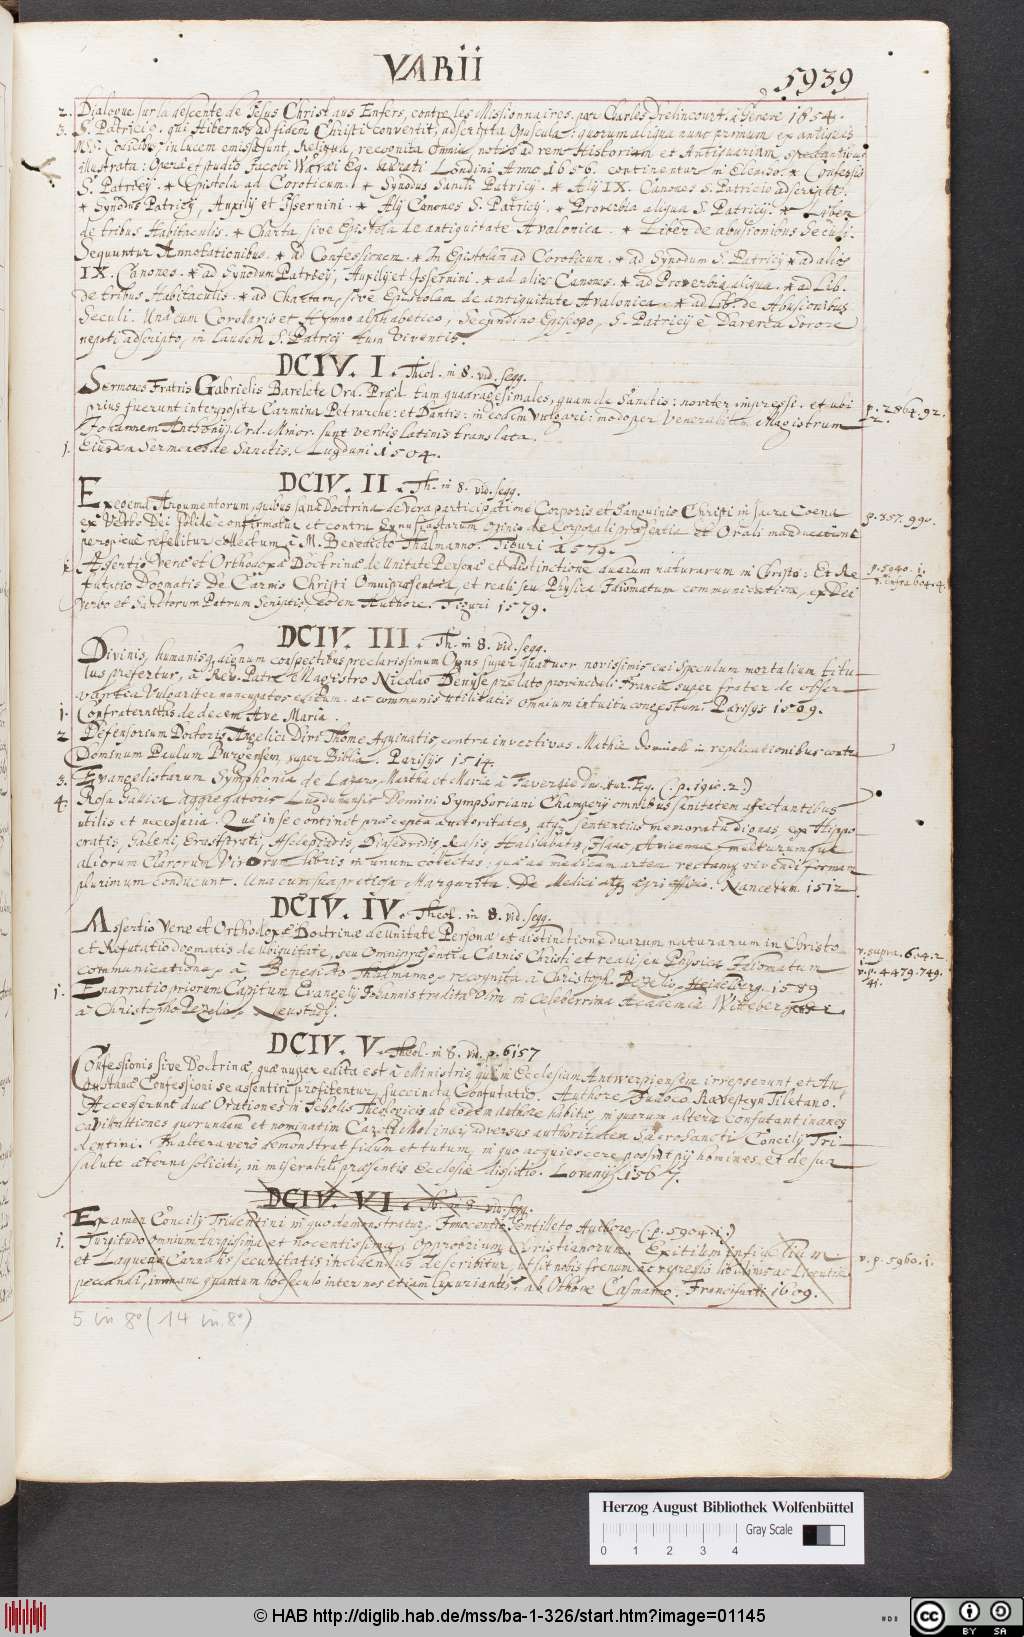 VARII
5939
2. Dialogue sur la descente de Jesus Christ aus Enfers, contre les Missionnaires. par Charles Drelincourt. à Geneve 1654.
3. S. Patricio. qui Hibernos ad fidem Christi convertit, adscripta Opuscula: quorum aliqua nunc primum ex antiquis
MSS. Codicibus in lucem emissa sunt, Reliqua, recognita Omnia, notis ad rem Historiam et Antiquariam spectantibus
illustrata: Operâ et studio Jacobi Waræi Eq. aurati Londini Anno 1656. continentur in Elencho. * Confessio
S. Patricij. * Epistola ad Coroticum. * Synodus Sancti Patricij. * Alij IX. Canones S. Patricio adscripti.
* Synodus Patricij, Auxilij et Issernini. * Alij Canones S. Patricij. * Proverbia aliqua S. Patricij. * Liber
de tribus Habitaculis. * Charta sive Epistola de antiquitate Avalonica. * Liber de abusionibus Seculi.
Sequuntur Annotationibus. * ad Confessionem. * In Epistolam ad Coroticum. * ad Synodum S. Patricij * ad alios
IX. Canones. * ad Synodum Patricij, Auxilij et Issernini. * ad alios Canones. * ad Proverbia aliqua. * ad Lib.
de tribus Habitaculis. * ad Chartam, sive Epistolam de antiquitate Avalonica. * ad Lib. de Abusionibus
Seculi. Una cum Corollario et Hymno alphabetico, Secundino Episcopo, S. Patricij è Darerca Sorore
nepoti adscripto, in laudem S. Patricij tum Viventis.
DCIV. I. Theol. in 8. vid. seqq.
Sermones Fratris Gabrielis Barelete Ord. Præd. tam quadragesimales, quam de Sanctis: noviter impressi. et ubi
prius fuerunt interposita Carmina Petrarche: et Dantis: in eodem Vulgari: modo per Venerabilem Magistrum
Johannem Anthonij. Ord. Minor. sunt verbis latinis translata.
p. 2864. 92.
1. Eiusdem Sermones de Sanctis. Lugduni 1504.
DCIV. II. Th. in 8. vid. seqq.
Exegema Argumentorum, quibus sana Doctrina de Vera participatione Corporis et Sanguinis Christi in sacra Coena
ex Verbo Dei solide confirmatur et contra Synusiastarum Opinio de Corporali præsentia et Orali manducatione
perspicuè refellitur collectum à M. Benedicto Thalmanno. Tiguri 1579.
p. 357. 990.
1. Assertio Veræ et Orthodoxæ Doctrinæ de Unitate Personæ et distinctione duarum naturarum in Christo: Et Re-
futatio Dogmatis De Carnis Christi Omnipræsentia, et reali seu Physica Idiomatum communicatione, ex Dei
Verbo et Sanctorum Patrum Scriptis eodem Authore. Tiguri 1579.
p. 5940. 1.
v. infra 604. 4.
DCIV. III. Th. in 8. vid. seqq.
Divinis, humanisq; dignum conspectibus preclarissimum Opus super quatuor novissimis cui Speculum mortalium titu-
lus prefertur, à Rev. Patre Magistro Nicolao Denyse prelato provinciali Francie super fratres de Obser-
vantia Vulgariter nuncupatos editum. ac communis utilitatis omnium intuitu congestum. Parisijs 1509.
1. Confraternitas de decem Ave Maria.
2. Defensorium Doctoris Angelici Divi Thome Aquinatis, contra invectivas Mathie Dominck in replicationibus contra
Dominum Paulum Burgensem super Biblia. Parisijs 1514.
3. Evangelistarum Symphonia de Lazaro, Martha et Maria à Faversio Duc. Aur. Eq. (: p. 1910. 2:)
4. Rosa Gallica aggregatoris Lugdunensis Domini Symphoriani Champerij omnibus sanitatem affectantibus
utilis et necessaria. Quæ in se continet præcepta auctoritates, atq; sententias memoratu dignas, ex Hippo-
cratis, Galeni, Erasistrati, Asclepiadis, Diascoridis, Rasis, Haliabatis, Isaac, Avicenne, multorumque
aliorum Clarorum Virorum libris in unum collectas: quæ ad medicam artem rectamq; vivendi formam
plurimum conducunt. Una cum sua preciosa Margarita. De Medici atq; egri officio. Nanceium 1512
DCIV. IV. Theol. in 8. vid. seqq.
Assertio Veræ et Orthodoxæ Doctrinæ de Unitate Personæ et distinctione duarum naturarum in Christo
et Refutatio dogmatis de Ubiquitate, seu Omnipræsentia Carnis Christi et reali seu Physica Idiomatum
communicatione, à Benedicto Thalmanno, recognita à Christoph. Pezelio. Heidelberg. 1589
v. supra. 604. 2
v. p. 4479. 749.
1. Enarratio priorum Capitum Evangelij Johannis tradita Viri in Celeberrima Academia Witteberge
à Christopho Pezelio. Neustadij.
DCIV. V. Theol. in 8. vid. p. 6157
Confessionis sive Doctrinæ, quæ nuper edita est à Ministris, qui in Ecclesiam Antwerpiensem irrepserunt et Au-
gustanæ Confessioni se assentiri profitentur, succincta Confutatio. Authore Judoco Ravesteyn Tiletano.
Accesserunt duæ Orationes in Scholis Theologicis ab eodem authore habitæ, in quarum altera confutant inanes
cavillationes quorundam et nominatim Car. Molinæi, adversus authoritatem Sacrosancti Concilij Tri-
dentini. In altera vero demonstrat fidum et tutum, in quo acquiescere possint pij homines, et de sua
salute æterna soliciti, in miserabili præsentis Ecclesiæ dissidio. Lovanij. 1567.
DCIV. VI. Th. in 8. vid. seqq.
Examen Concilij Tridentini in quo demonstratur. Innocentio Gentileto Authore, (: p. 5904. 1:)
1. Turpitudo omnium turpissima et nocentissima, Opprobrium Christianorum. Exitium infidelium
et Laqueus Carnalis securitatis incidendus describitur, ut sit nobis frenum ac repressio libidinis ac Licentiæ
peccandi, immane quantum hoc seculo inter nos etiam luxuriantis. ab Othone Casmanno. Francofurti 1609.
v. p. 5960. 1.
5 in 8° (14 in 8°)
Herzog August Bibliothek Wolfenbüttel
Gray Scale
0 1 2 3 4
© HAB http://diglib.hab.de/mss/ba-1-326/start.htm?image=01145
cc BY SA